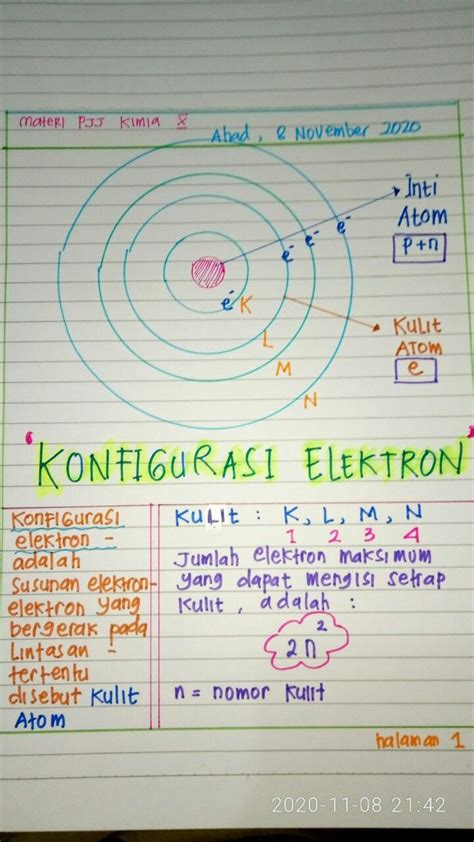 Materi PJJ Kimia X
Ahad, 8 November 2020
Inti
Atom
p+n
e-
e-
e-
e-
K
L
M
N
Kulit
Atom
e
"KONFIGURASI ELEKTRON"
Konfigurasi
elektron -
adalah
susunan elektron-
elektron yang
bergerak pada
Lintasan -
tertentu
disebut Kulit
Atom
Kulit : K, L, M, N
1 2 3 4
Jumlah elektron maksimum
yang dapat mengisi setiap
kulit, adalah :
2n²
n = nomor kulit
halaman 1
2020-11-08 21:42